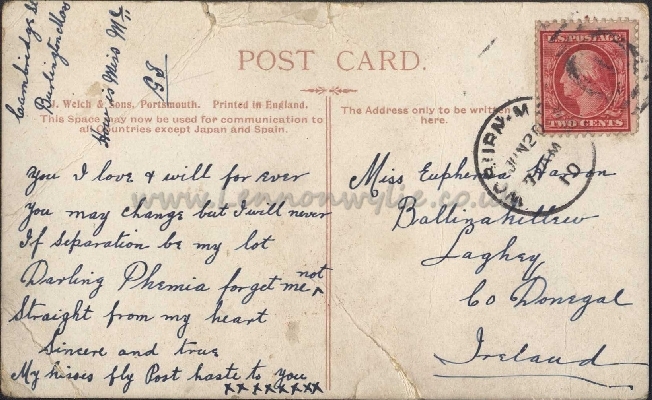 Cambridge
Burlington Mass
How is Miss Mc
G J
POST CARD.
U.S. POSTAGE
TWO CENTS
J. Welch & Sons, Portsmouth. Printed in England.
This Space may now be used for communication to
all Countries except Japan and Spain.
The Address only to be written
here.
WOBURN M
JUN 2
7 AM
10
You I love & will for ever
You may change but I will never
If separation be my lot
Darling Phemia forget me not
Straight from my heart
Sincere and true
My kisses fly Post haste to you
x x x x x x x x
Miss Euphemia
Ballinakillew
Laghey
Co Donegal
Ireland
www.Lennonwylie.co.uk